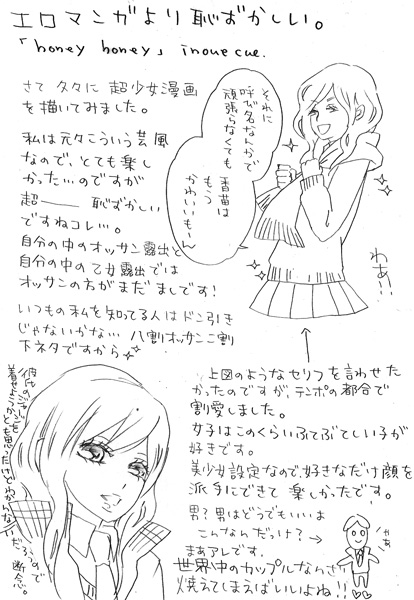 エロマンガより恥ずかしい。
「honey honey」 inoue cue.
さて 久々に 超少女漫画
を描いてみました。
私は元々こういう芸風
なので、とても楽し
かった…のですが
超―― 恥ずかしい
ですねコレ…。
自分の中のオッサン露出と
自分の中の乙女露出では
オッサンの方がまだましです!
いつもの私を知ってる人はドン引き
じゃないかな… 八割オッサン二割
下ネタですから
それに
呼び名なんかで
頑張らなくても
杏苗は
もう
かわいいもーん
わあ!!
上図のようなセリフを言わせた
かったのですが、テンポの都合で
割愛しました。
女子はこのくらいふてぶてしい子が
好きです。
美少女設定なので、好きなだけ顔を
派手にできて 楽しかったです。
男?男はどうでもいいよ
こんなんだっけ?→
まあアレです。
世界中のカップルなんざ
焼えてしまえばいいよね!!
やあ
彼氏の
着せ
とも思ったけど
ので
断念。